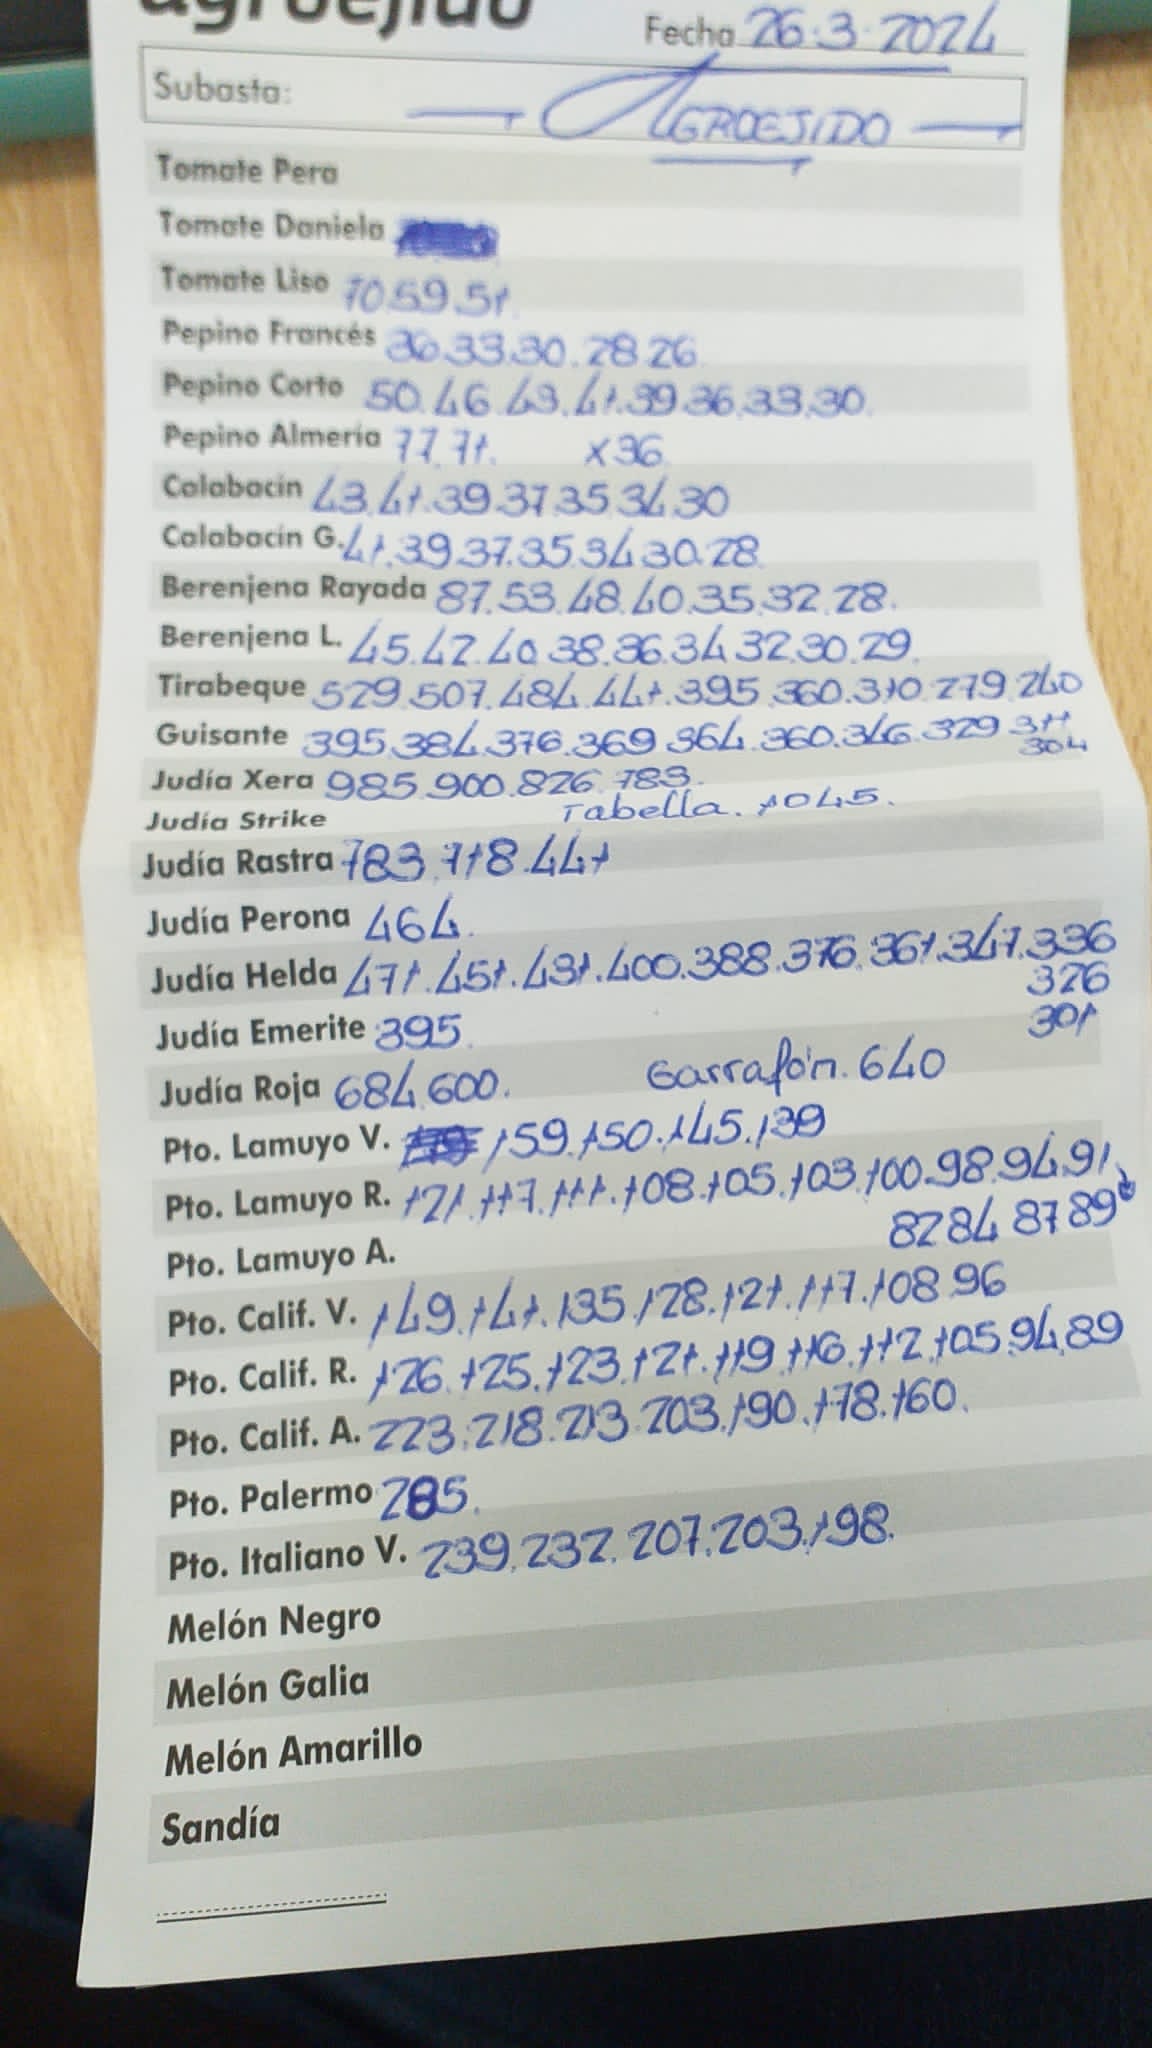 agroejido
Fecha 26.3.2024
Subasta: AGROEJIDO
Tomate Pera
Tomate Daniela
Tomate Liso 70.59.51.
Pepino Francés 36.33.30.28.26.
Pepino Corto 50.46.43.41.39.36.33.30.
Pepino Almería 77.71. x36
Calabacín 43.41.39.37.35.34.30
Calabacín G. 41.39.37.35.34.30.28.
Berenjena Rayada 87.53.48.40.35.32.28.
Berenjena L. 45.42.40.38.36.34.32.30.29.
Tirabeque 529.507.484.441.395.360.310.279.240
Guisante 395.384.376.369.364.360.346.329.311
304
Judía Xera 985.900.826.783.
Judía Strike Tabella. 1045.
Judía Rastra 783.718.441
Judía Perona 464.
Judía Helda 471.451.431.400.388.376.361.347.336
326
Judía Emerite 395. 301
Judía Roja 684.600. Garrafón. 640
Pto. Lamuyo V. 159.150.145.139
Pto. Lamuyo R. 121.117.111.108.105.103.100.98.94.91
Pto. Lamuyo A. 82 84 87 89
Pto. Calif. V. 149.141.135.128.121.117.108.96
Pto. Calif. R. 126.125.123.121.119.116.112.105.94.89
Pto. Calif. A. 223.218.213.203.190.178.160.
Pto. Palermo 285.
Pto. Italiano V. 239.232.207.203.198.
Melón Negro
Melón Galia
Melón Amarillo
Sandía